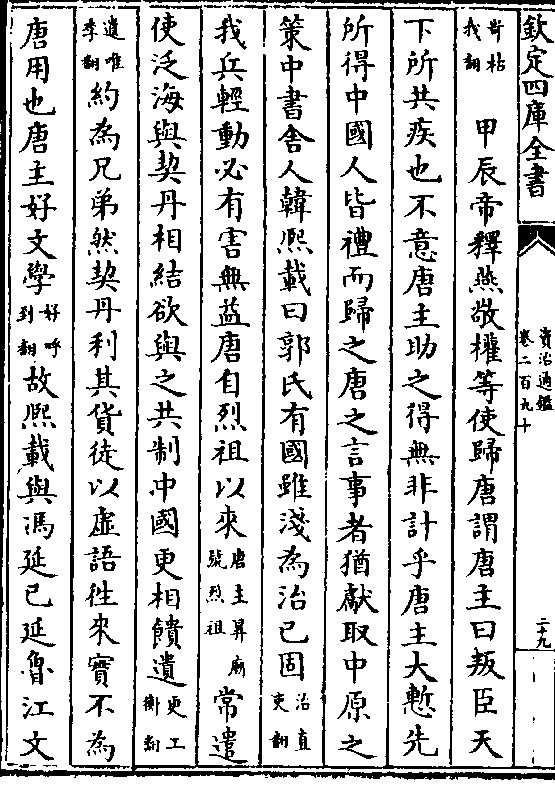 欽定四庫全書
資治通鑑
卷二百九十
二十九
斬粘
我翻
甲辰帝釋燕敬權等使歸唐謂唐主曰叛臣天
下所共疾也不意唐主助之得無非計乎唐主大慙先
所得中國人皆禮而歸之唐之言事者猶獻取中原之
策中書舍人韓熈載曰郭氏有國雖淺為治已固治直
吏翻
我兵輕動必有害無益唐自烈祖以來唐主昇廟
號烈祖
常遣
使泛海與契丹相結欲與之共制中國更相饋遺更工
衡翻
遺唯
季翻
約為兄弟然契丹利其貨徒以虛語徃來實不為
唐用也唐主好文學好呼
到翻
故熈載與馮延已延魯江文